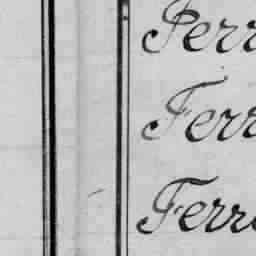 Ferr
Ferr
Ferre